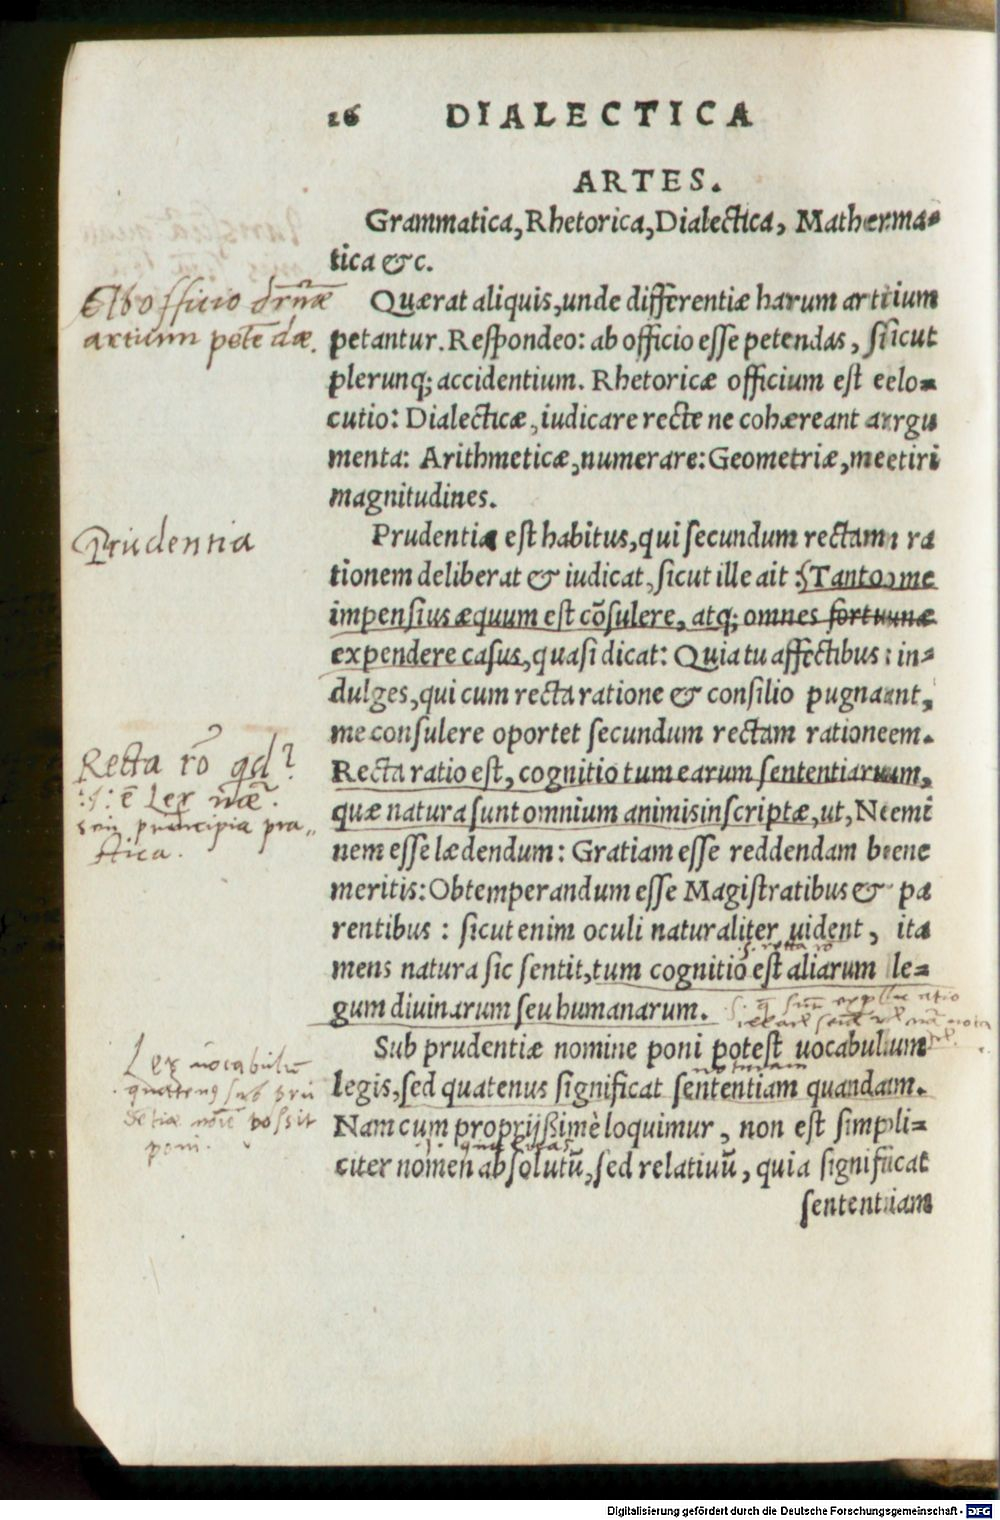 26 DIALECTICA
ARTES.
Grammatica, Rhetorica, Dialectica, Mathema⸗
tica &c.
Ab officio
artium petēdæ.
Quærat aliquis, unde differentiæ harum artium
petantur. Respondeo: ab officio esse petendas, sicut
plerunq; accidentium. Rhetoricæ officium est elo⸗
cutio: Dialecticæ, iudicare recte ne cohæreant argu
menta: Arithmeticæ, numerare: Geometriæ, metiri
magnitudines.
Prudentia
Prudentia est habitus, qui secundum rectam ra
tionem deliberat & iudicat, sicut ille ait: Tanto me
impensius æquum est cōsulere, atq; omnes fortunæ
expendere casus, quasi dicat: Quia tu affectibus in⸗
dulges, qui cum recta ratione & consilio pugnant,
me consulere oportet secundum rectam rationem.
Recta rō qd?
ē Lex
principia pra⸗
ctica.
Recta ratio est, cognitio tum earum sententiarum,
quæ natura sunt omnium animis inscriptæ, ut, Nemi
nem esse lædendum: Gratiam esse reddendam bene
meritis: Obtemperandum esse Magistratibus & pa
rentibus: sicut enim oculi naturaliter uident, ita
recta rō
mens natura sic sentit, tum cognitio est aliarum le⸗
gum diuinarum seu humanarum.
Lex uocabulū
sub pru
dētiæ possit
poni.
Sub prudentiæ nomine poni potest uocabulum
legis, sed quatenus significat sententiam quandam.
Nam cum propriißimè loquimur, non est simpli⸗
citer nomen absolutū, sed relatiuū, quia significat
sententiam
Digitalisierung gefördert durch die Deutsche Forschungsgemeinschaft - DFG